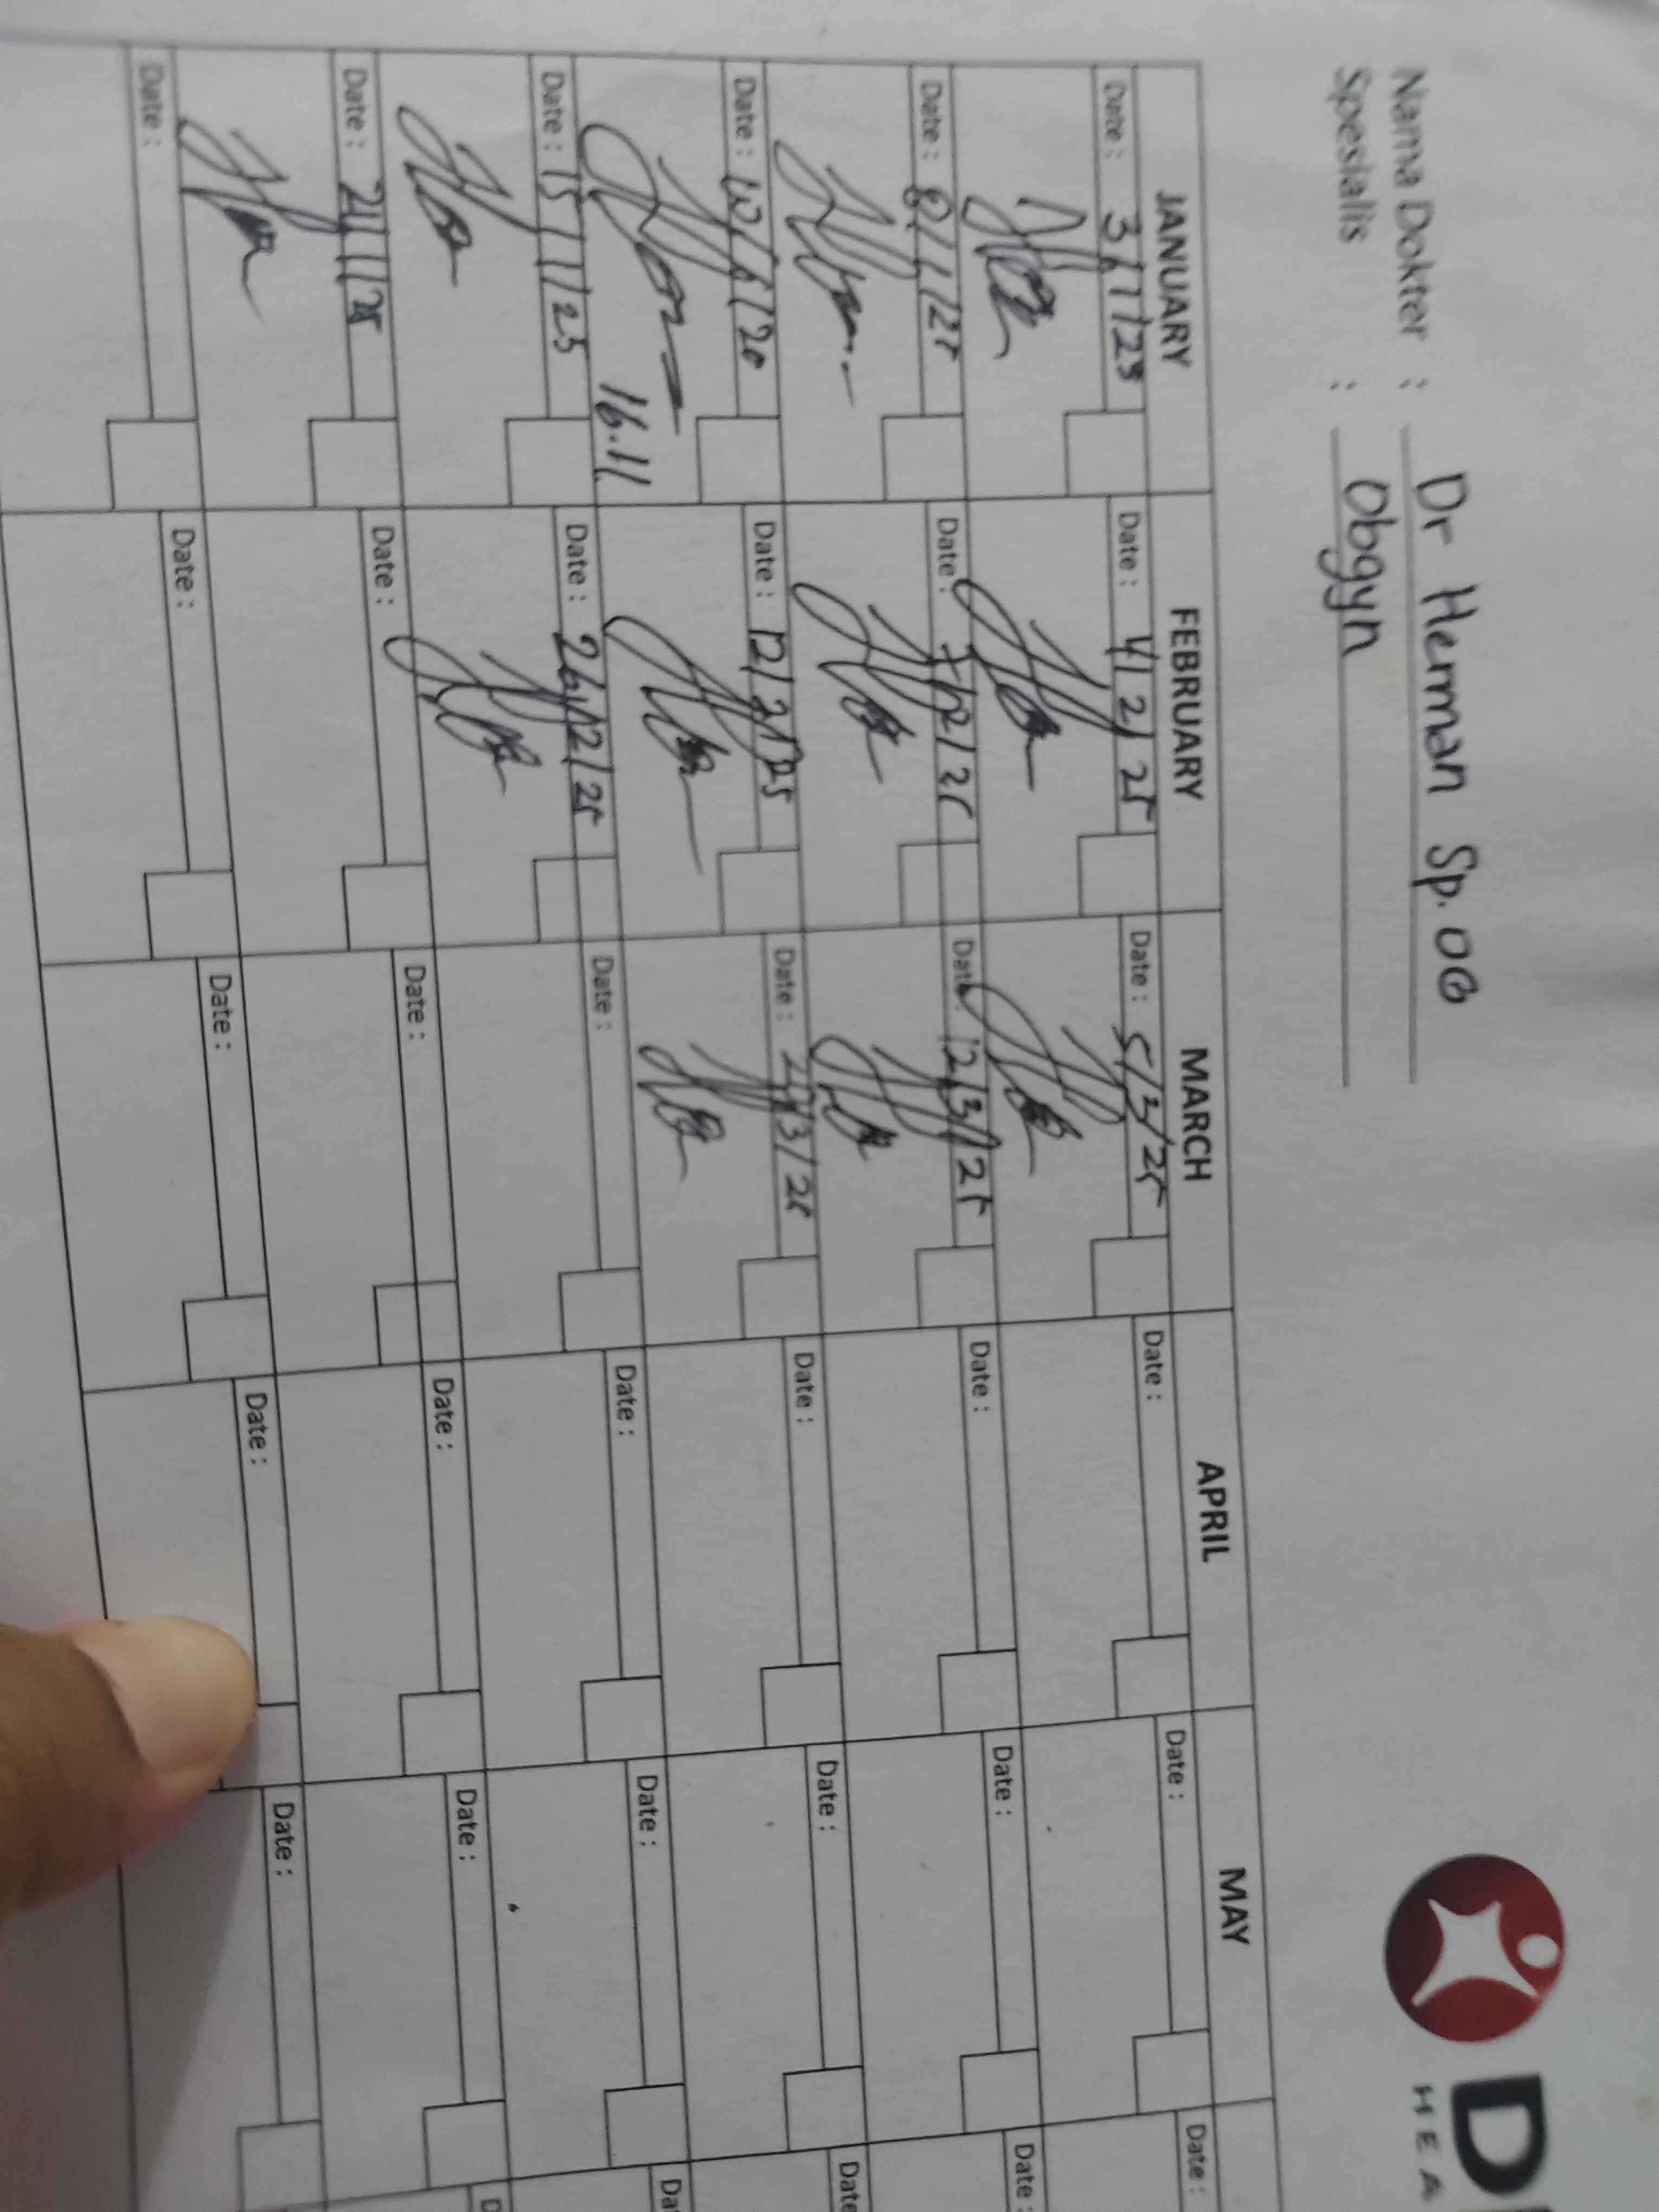 Nama Dokter : Dr Herman Sp. OG
Spesialis : Obgyn
D
HEA
JANUARY FEBRUARY MARCH APRIL MAY
Date : 3/1/25 Date : 4/2/25 Date : 5/3/25 Date : Date : Date :
Date : 8/1/25 Date : 7/2/25 Date : 12/3/25 Date : Date : Date :
Date : Date : 12/2/25 Date : Date : Date : Date
16.11
Date : 15/1/25 Date : 26/2/25 Date : Date : Date : Da
Date : 21/1/25 Date : Date : Date : Date : D
Date : Date : Date : Date : Date :